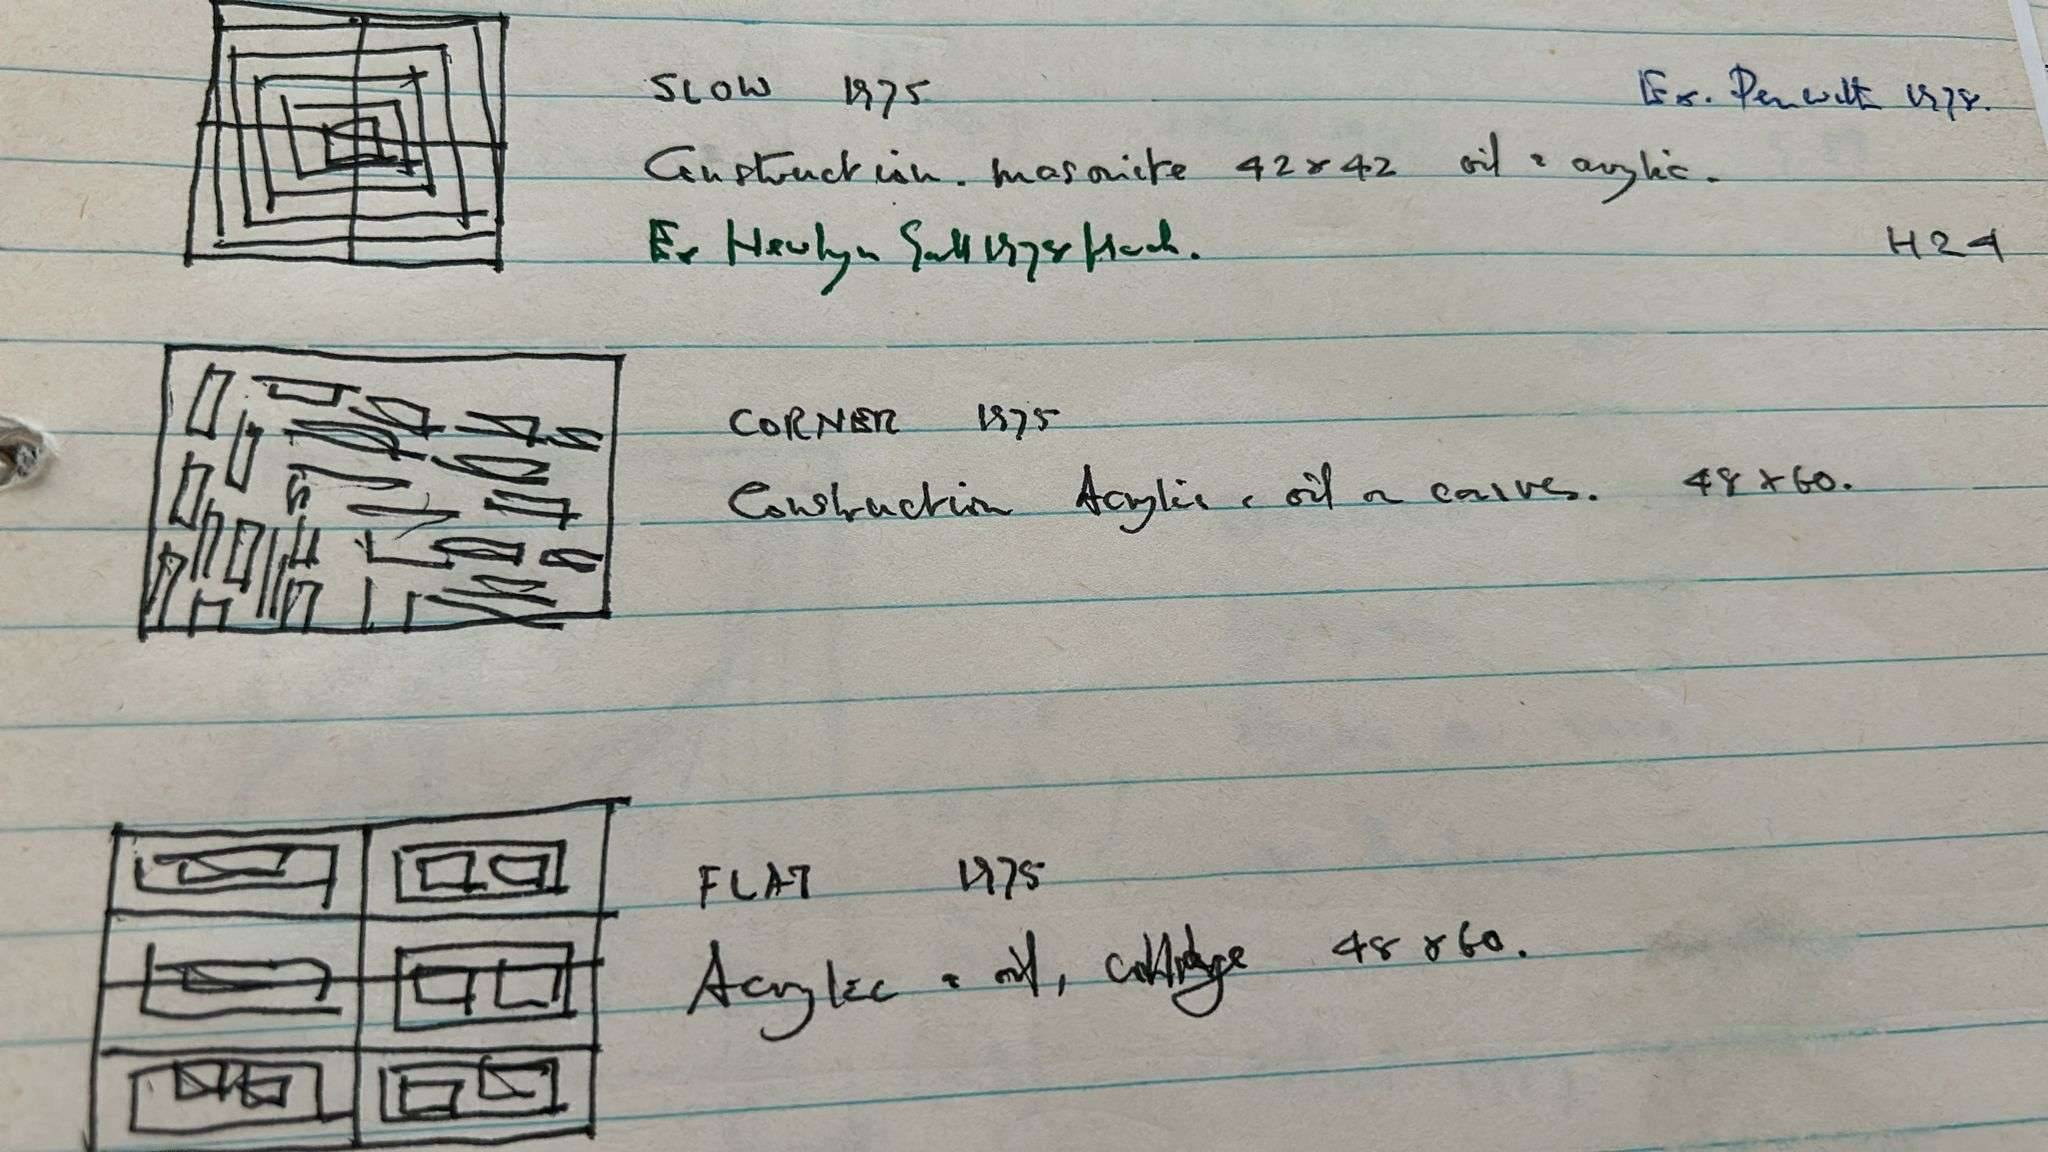 SLOW 1975 Ex. Penwith 1978.
Construction. masonite 42x42 oil & acrylic.
Ex Newlyn Gall 1978 March.
H24
CORNER 1975
Construction Acrylic & oil on canvas. 48x60.
FLAT 1975
Acrylic & oil, collage 48x60.